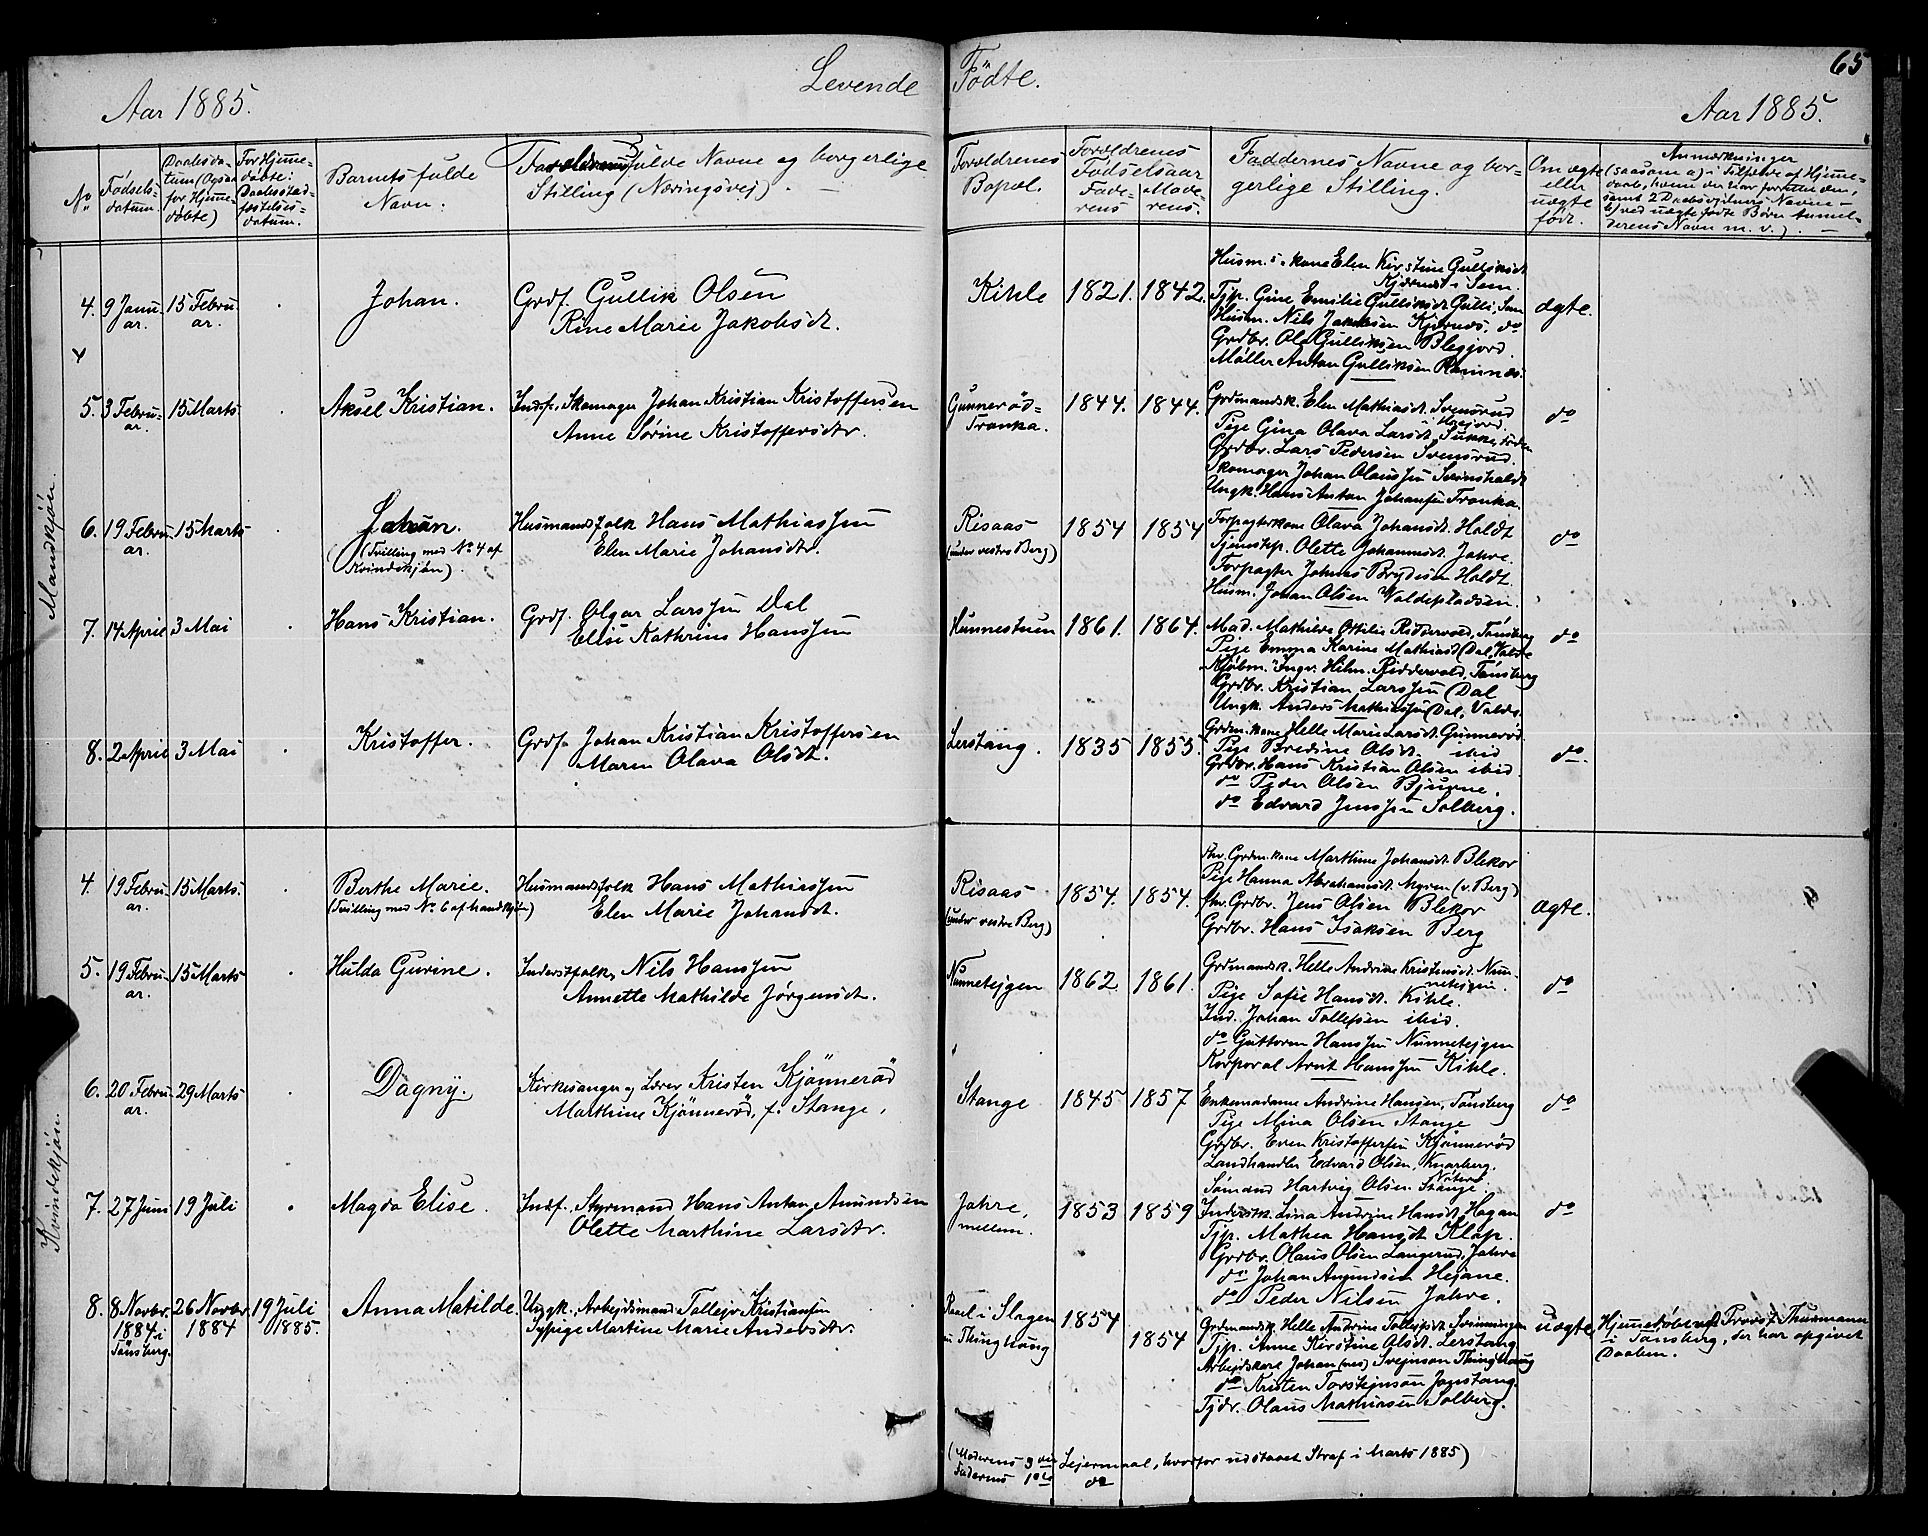 Levende Födte.
65
Aar 1885.
Aar 1885.
No
Födsels-
datum.
Daabsda-
tum (Ogsaa
for Hjemme-
döbte)
For Hjemme-
döbte:
Daabsstad-
fæstelses-
datum.
Barnets fulde
Navn.
Forældrenes fulde Navne og borgerlige
Stilling (Næringsvej).
Forældrenes
Bopæl.
Forældrenes
Födselsaar
Fade-
rens
Mode-
rens.
Faddernes Navne og bor-
gerlige Stilling.
Om ægte
eller
uægte
född.
Anmærkninger
(saasom a) i Tilfælde af Hjemme-
daab, hvem der har forrettet den,
samt 2 Daabsvidners Navne -
b) ved uægte födte Börn Anmel-
derens Navn m. v.). -
Mandkjön.
4. 9 Janu-
ar.
15 Febru-
ar.
Johan.
Grdf. Gullik Olsen
Rine Marie Jakobsdt.
Kihle
1821. 1842.
Husm.s. kone Elen Kirstine Gulliksdt.
Kjærnes i Sem.
Tjp. Gine Emilie Gulliksdt. Gulli, Sem
Husm. Nils Jakobsen Kjærnes, do
Grdbr. Ole Gulliksen Blegjord.
Møller Anton Gulliksen Ramnes.
ægte.
5. 3 Febru-
ar.
15 Marts
Aksel Kristian.
Indf., Skomager Johan Kristian Kristoffersen
Anne Sørine Kristoffersdtr.
Gunnerød-
Tronka.
1844. 1844.
Grdmandsk. Elen Mathiasdt. Svensrud
Pige Gina Olava Larsdt. Sukke,
Grdbr. Lars Pedersen Svensrud.
Skomager Johan Olaussen
Ungk. Hans Anton Johansen Tronka.
do
6. 19 Febru-
ar.
15 Marts
Johan.
(Tvilling med No 4 af
Kvindekjön).
Husmandsfolk Hans Mathiassen
Elen Marie Johansdtr.
Risaas
(under vestre Berg)
1854 1854
Forpagterkone Olava Johansdt. Holdt
Tjenestep. Olette Johannesdt. Jahre.
Forpagter Johnes Brydesen Holdt.
Husm. Johan Olsen Valdepladsen.
do
7. 14 April 3 Mai
Hans Kristian.
Grdf. Olgar Larssen Dal
Elise Kathrine Hanssen
Hunnestuen
1861. 1864.
Mad. Mathilde Ottilie Riddervold, Tönsberg
Pige Emma Karine Mathiasdt. Dal, Valde
Kjöbm. Ingv. Hilm. Riddervold, Tönsberg
Grdbr. Kristian Larssen Dal
Ungk. Anders Mathiassen Dal, Valde.
do
8. 2 April 3 Mai
Kristoffer.
Grdf. Johan Kristian Kristoffersen
Maren Olava Olsdt.
Lerstang.
1835 1855.
Grdm.kone Helle Marie Larsdt. Gunnerød
Pige Bredine Olsdt. ibid
Grdbr. Hans Kristian Olsen ibid.
do Peder Olsen Bjuerne.
do Edvard Jenssen Solberg.
do.
Kvindekjön.
4. 19 Febru-
ar.
15 Marts.
Berthe Marie.
(Tvilling med No 6 af Mandkjön)
Husmandsfolk Hans Mathiassen
Elen Marie Johansdt.
Risaas
(under vestre Berg)
1854. 1854.
fhv. Grdm.kone Marthine Johansdt. Blekor
Pige Hanna Abrahamsdt. (v. Berg)
fhv. Grdbr. Jens Olsen Blekor
Grdbr. Hans Isaksen Berg
ægte.
5. 19 Febru-
ar.
15 Marts
Hulda Gurine.
Inderstfolk, Nils Hanssen
Annette Mathilde Jørgensdt.
Nunnetejgen
1862 1861.
Grdmandsk. Helle Andrine Kristensdt. Nun-
netejgen.
Pige Sofie Hansdt. Kihle.
Ind. Johan Tollefsen ibid.
do Guttorm Hanssen Nunnetejgen
Korporal Arnt Hanssen Kihle.
do
6. 20 Febru-
ar.
29 Marts
Dagny.
Kirkesanger og Lærer Kristen Kjönneröd
Marthine Kjönneröd, f. Stange.
Stange
1845 1857
Enkemadame Andrine Hansen, Tönsberg
Pige Mina Olsen Stange
Grdbr. Even Kristoffersen Kjönneröd
Landhandler Edvard Olsen, Knarberg,
Nöterö
Sömand Hartvig Olsen Stange.
do
7. 27 Juni 19 Juli
Magda Elise.
Indf. Styrmand Hans Anton Amundsen
Olette Marthine Larsdtr.
Jahre,
mellem.
1853 1859
Inderstk. Lina Andrine Hansdt. Hagan
Tjp. Mathea Hansdt. Klop.
Grdbr. Olaus Olsen Langerud, Jahre
do Johan Amundsen Hejane.
do Peder Nilsen Jahre.
do
8. 8 Novbr.
1884 i
Tönsberg.
26 Novbr.
1884
19 Juli
1885.
Anna Matilde.
Ungk. Arbejdsmand Tollejv Kristiansen
Sypige Martine Marie Andersdtr.
Røel i Slagen
u Thinghoug
1854
1854
Grdmandsk. Helle Andrine Tollefsdt. Svinningen
Tjp. Anne Kirstine Olsdt. Lerstang
Arbejdskarl Johan (nes) Svejnson Thinghoug
do Kristen Torstejnsön Jonstang.
Tjdr. Olaus Mathiasen Solberg.
uægte
Hjemmedöbt af Provst Thurmann
i Tönsberg, der har opgivet
Daaben.
(Moderens 3die Lejermaal, hvorfor udstaaet Straf i Marts 1885)
Faderens 1ste do